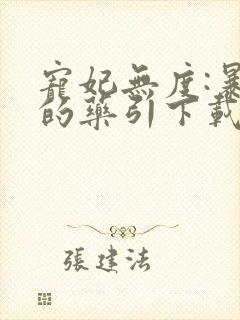 寵妃無度:暴
的藥引下載
張建法